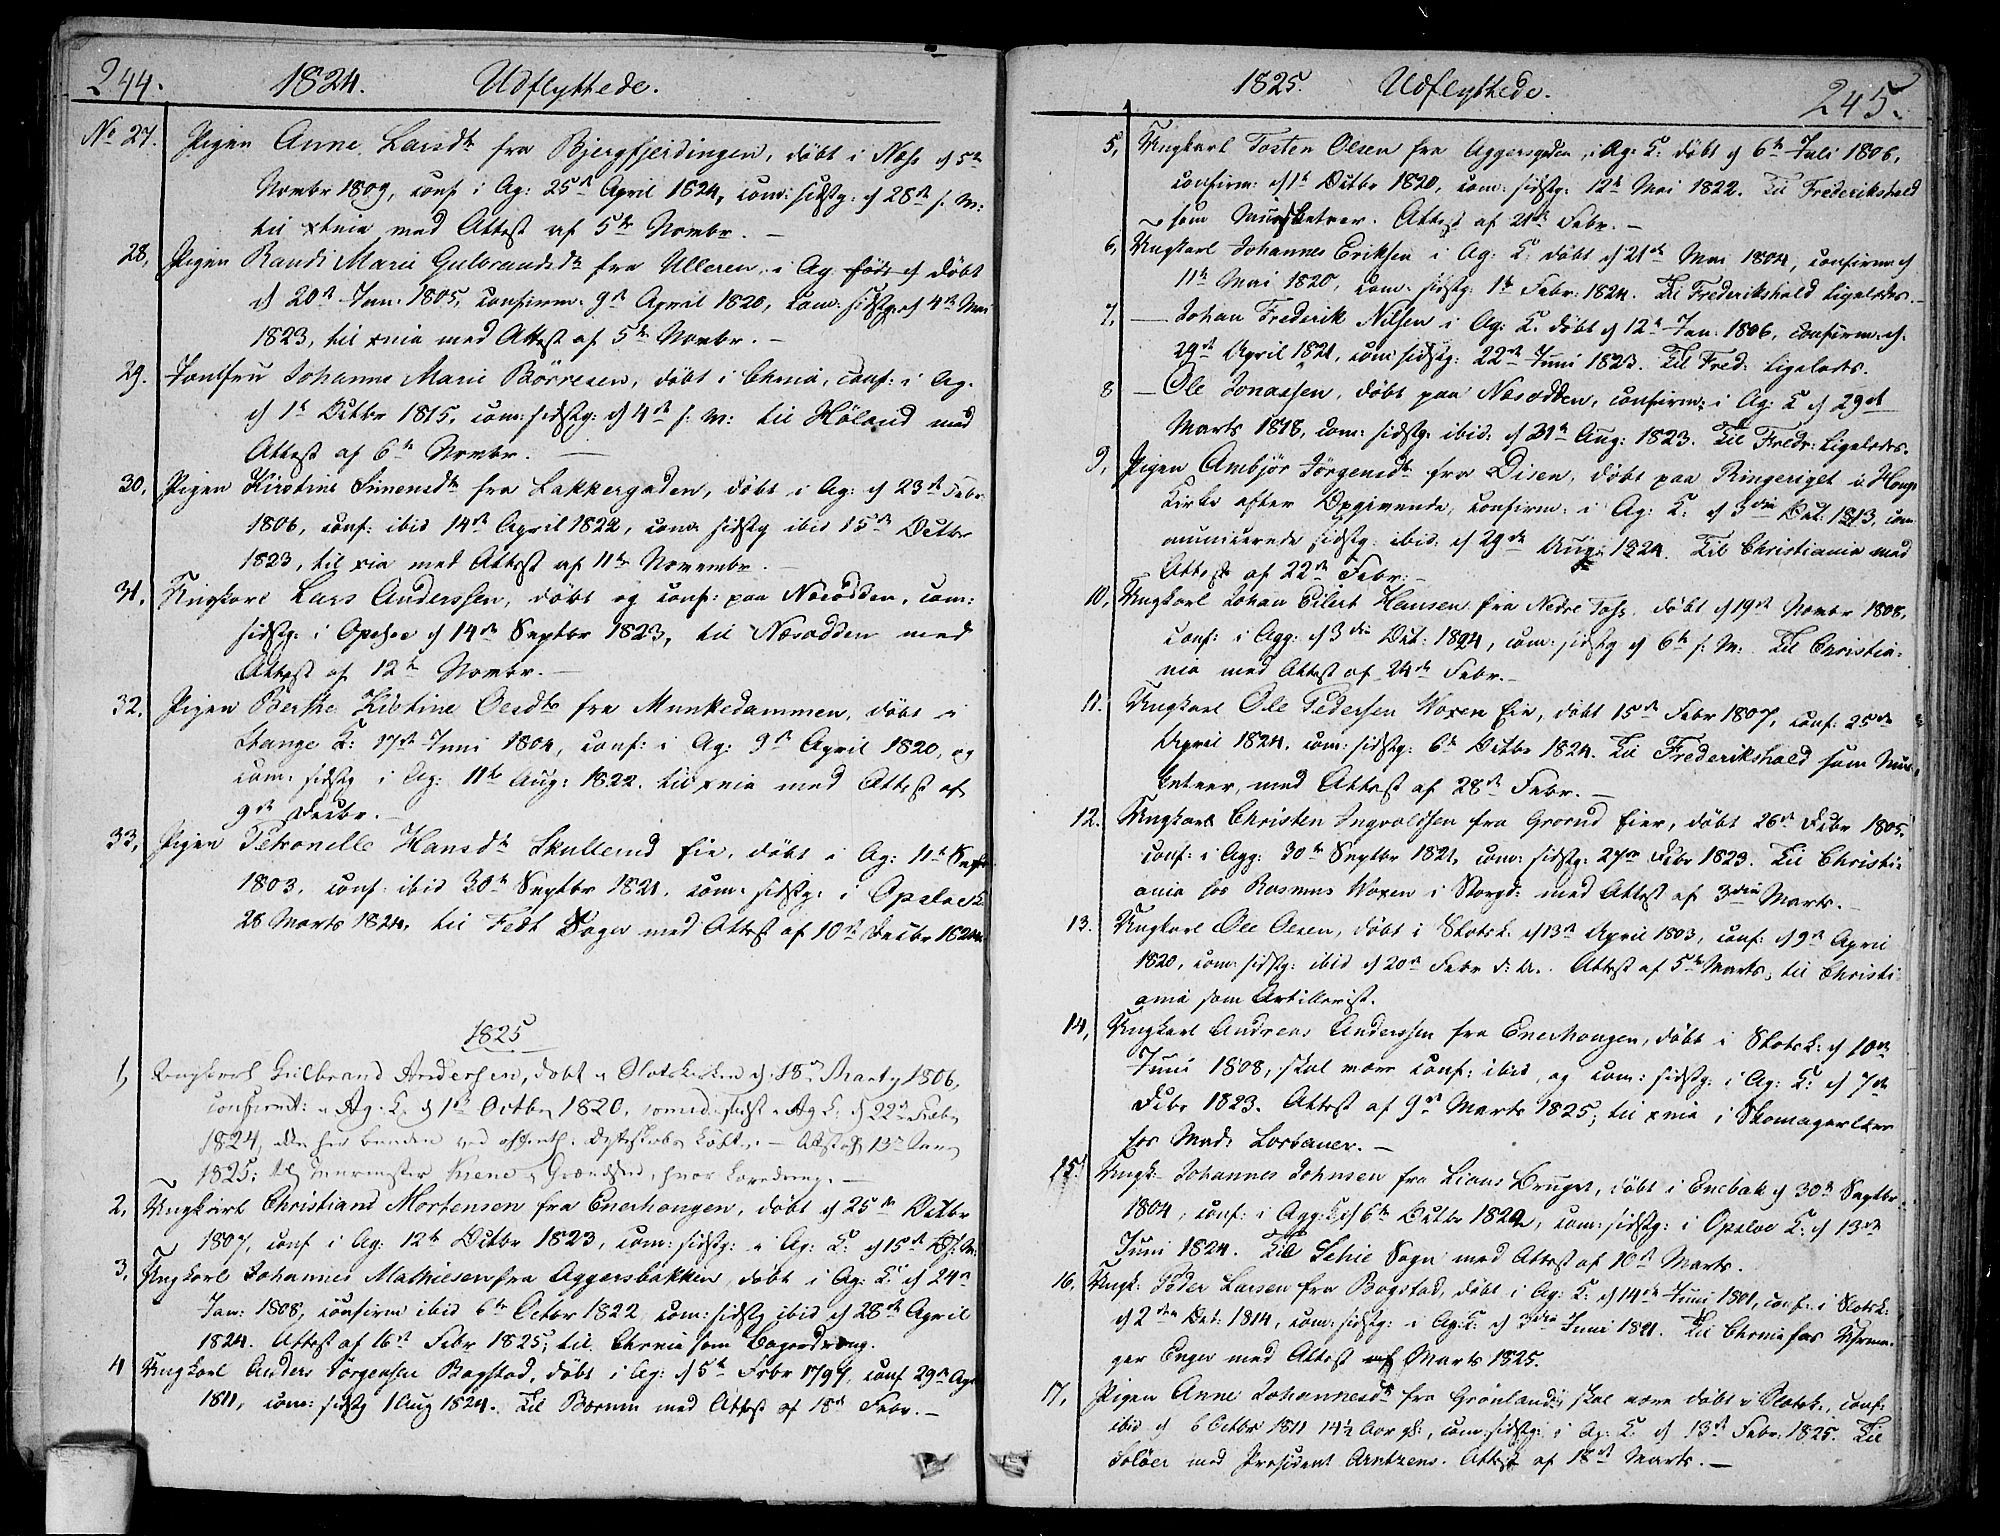 244. 1824. Udflyttede.
No 27. Pigen Anne Larsdtr fra Bjergfjerdingen, døbt i Næs d 5te
Novembr 1809, conf i Ag: 25de April 1824, com: sidstg: d 28de s. M:
til xtnia med Attest af 5te Novembr. —
28, Pigen Randi Marie Gulbrandsdtr fra Ulleren, i Ag: døbt
d 20de Jan: 1805, confirm: 9de April 1820, com: sidstg: d 4de Mai
1823, til xnia med Attest af 5te Novembr. —
29. Jomfru Johanne Marie Börresen, døbt i Chrnia, conf: i Ag:
d 1te Octbr 1815, com: sidstg: d 4de s: M: til Höland med
Attest af 6te Novembr. —
30, Pigen Kirstine Simensdtr fra Lakkergaden, døbt i Ag: d 23de Febr
1806, conf: ibid 14de April 1822, com: sidstg ibid 15de Octbr
1823, til xia med Attest af 11te Novembr. —
31, Ungkarl Lars Anderssen, døbt og conf: paa Næsodden, com:
sidstg: i Opsloe d 14de Septbr 1823, til Næsodden med
Attest af 12te Novembr. —
32, Pigen Berthe Kirstine Olsdtr fra Munkedammen, døbt i
Stange K: 17de Juni 1804, conf: i Ag: 9de April 1820, og
com: sidstg i Ag: 11te Aug: 1822. til xnia med Attest af
9de Decbr. —
33, Pigen Petronelle Hansdtr Skullerud Eie, døbt i Ag: 11te Sept
1803, conf: ibid 30te Septbr 1821, com: sidstg: i Opsloe K.
28 Marts 1824, til Fedt Sogn med Attest af 10de Decbr 1824
1825
1, Ungkarl Gulbrand Andersen, døbt i Slotskirken d. 18de Marty 1806,
confirmt: i Ag. K. d 1te Octbr 1820, comed: sidst i Ag K. d 22de Febr
1824,
1825;
2, Ungkarl Christiand Mortensen fra Enerhougen, døbt d 25de Octbr
1807, conf i Ag: 12te Octbr 1823, com: sidstg: i Ag: K: d 15de
3, Ungkarl Johannes Mathiesen fra Aggersbakken, døbt i Ag: K: d 24de
Jan: 1808, confirm ibid 6te Octbr 1822, com: sidstg ibid d 28de April
1824. Attest af 16de Febr 1825, til Chrnia som Bagerdreng.
4 Ungkarl Anders Jörgensen Bogstad, døbt i Ag: d 5te Febr 1797, conf 29de Apr
1811, com: sidstg 1 Aug 1824. Til Bærum med Attest af 18de Febr. —
1825. Udflyttede. 245.
5, Ungkarl Tosten Olsen fra Aggersgaden, i Ag: K: døbt d 6te Juli 1806,
confirm: d 1te Octbr 1820, com: sidstg: 12te Mai 1822. Til Frederikshald
som Musketeer. Attest af 21de Febr. —
6, Ungkarl Johannes Eriksen i Ag: K: døbt d 21de Mai 1804, confirm: d
11te Mai 1820, com: sidstg: 1te Febr: 1824. Til Frederikshald Ligeledes. —
7, — Johan Frederik Nilsen i Ag: K. døbt d 12te Jan: 1806, confirm: d.
29de April 1821, com: sidstg: 22de Juni 1823. Til Fred: Ligeledes.
8 — Ole Jonassen, døbt paa Næsodden, confirm: i Ag: K d 29de
Marts 1818, com: sidstg: ibid: d 31te Aug: 1823. Til Fredr: Ligeledes.
9, Pigen Ambjør Jörgensdtr fra Disen, døbt paa Ringeriget i
Kirke efter Opgivende, confirm: i Ag: K: d 3die Oct: 1813, com
municerede sidstg: ibid: d 29de Aug: 1824. Til Christiania med
Attest af 22de Febr: —
10, Ungkarl Johan Eilert Hansen fra Nedre Foss. døbt d 19de Novbr 1808,
conf: i Agg: d 3die Oct: 1824, com: sidstg d 6te s: M: Til Christia-
nia med Attest af 24de Febr. —
11. Ungkarl Ole Pedersen Voxen Eie, døbt 15de Febr 1807, conf: 25de
April 1824, com: sidstg: 6te Octbr 1824. Til Frederikshald som Mus-
keteer, med Attest af 28de Febr. —
12. Ungkarl Christen Ingvaldsen fra Grorud Eier, døbt 26de Febr 1805
conf: i Agg: 30te Septbr 1821, com: sidstg: 27de Febr 1823. Til Christi-
ania hos Rasmus Voxen i Storgd: med Attest af 3die Marts. —
13. Ungkarl Ole Olsen, døbt i Slotsk: d 13de April 1803, conf: d 9de April
1820, com: sidstg: ibid d 20de Febr d: A:. Attest af 5te Marts, til Christi-
ania som Artillerist.
14, Ungkarl Andreas Anderssen fra Enerhougen, døbt i Slotsk: d 10de
Juni 1808, skal være conf: ibid, og com: sidstg: i Ag: K: d 7de
Febr 1823. Attest af 9de Marts 1825; til xnia i Skomagerlære
hos Mads Lorbauer. —
15. Ungk: Johannes Johnsen fra Lians Bruget, døbt i Enebak d 30te Septbr
1804, conf: i Agg: K d 6te Octbr 1822, com: sidstg: i Opsloe K: d 13de
Juni 1824. Til Schie Sogn med Attest af 10de Marts.
16, Ungk: Peder Larsen fra Bogstad, døbt i Ag: K: d 14de Juni 1801, conf: i Slotsk:
d 2den Oct: 1814, com: sidstg: i Ag: K: d 3die Juni 1821. Til Chrnia hos
ger Enger med Attest af Marts 1825.
17, Pigen Anne Johannesdtr fra Grönland, skal være døbt i Slotsk:, conf:
ibid d 6 Octbr 1811 14½ Aar gl:, com: sidstg: i Ag: K: d 13de Febr: 1825. Til
Soløer med President Arntzens. Attest af 18de Marts. —